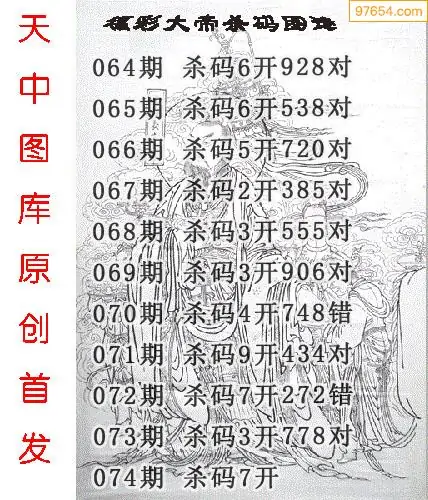 97654.com
福彩大帝杀码图迷
天中图库原创首发
064期 杀码6开928对
065期 杀码6开538对
066期 杀码5开720对
067期 杀码2开385对
068期 杀码3开555对
069期 杀码3开906对
070期 杀码4开748错
071期 杀码9开434对
072期 杀码7开272错
073期 杀码3开778对
074期 杀码7开